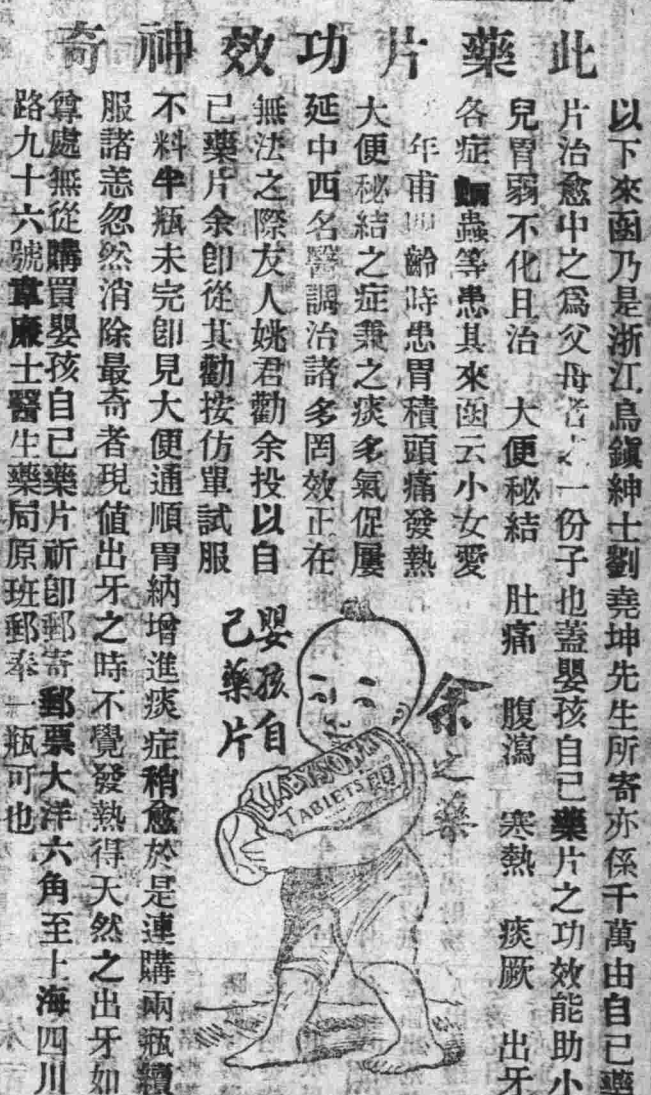 此藥片功效神奇
以下來函乃是浙江烏鎮紳士劉堯坤先生所寄亦係千萬由自己藥
片治愈中之為父母者之一份子也蓋嬰孩自己藥片之功效能助小
兒胃弱不化且治 大便秘結 肚痛 腹瀉 寒熱 痰厥 出牙
各症 蟲等患其來函云小女愛
年甫四齡時患胃積頭痛發熱
大便秘結之症兼之痰多氣促屢
延中西名醫調治諸多罔效正在
無法之際友人姚君勸余投以自
己藥片余卽從其勸按仿單試服
不料半瓶未完卽見大便通順胃納增進痰症稍愈於是連購兩瓶續
服諸恙忽然消除最奇者現値出牙之時不覺發熱得天然之出牙如
尊處無從購買嬰孩自己藥片祈卽郵寄郵票大洋六角至上海四川
路九十六號韋廉士醫生藥局原班郵奉一瓶可也
余之藥
嬰孩自
己藥片
BABY'S OWN
TABLETS